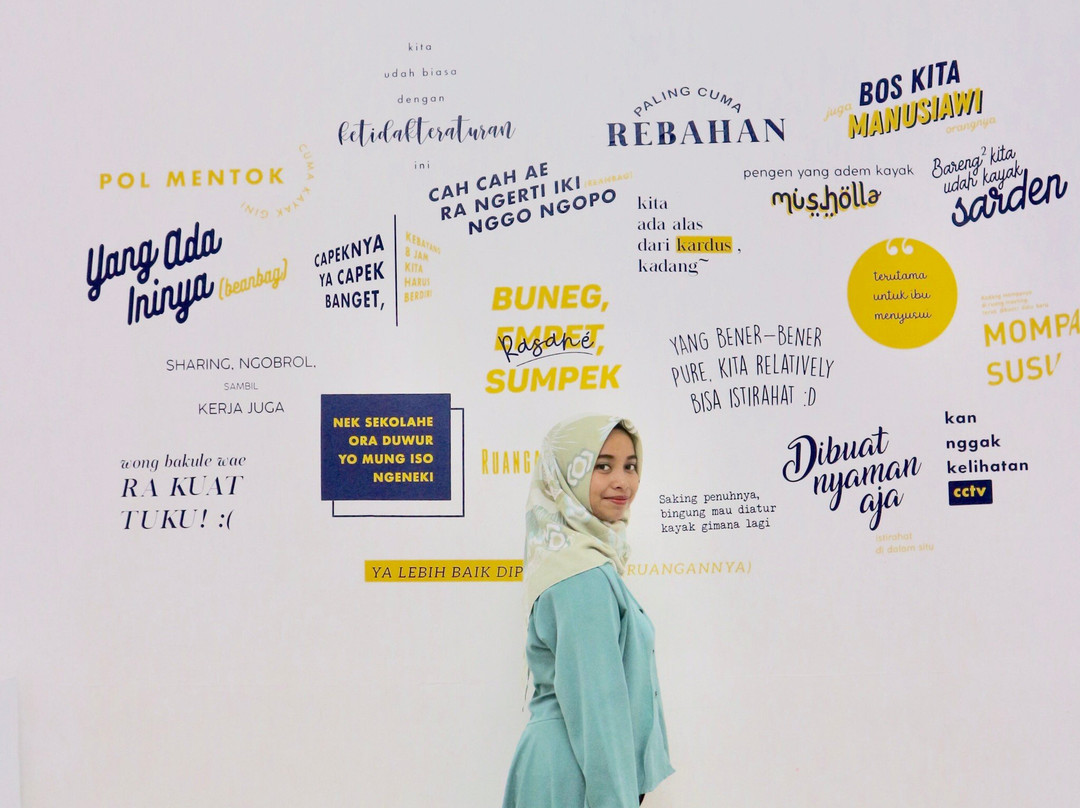 kita
udah biasa
dengan
ketidakteraturan
ini
PALING CUMA
REBAHAN
juga
BOS KITA
MANUSIAWI
orangnya
POL MENTOK
CUMA KAYAK GINI
CAH CAH AE
RA NGERTI IKI (BEANBAG)
NGGO NGOPO
pengen yang adem kayak
mushölla
Bareng² kita
udah kayak
sarden
Yang Ada
Ininya (beanbag)
CAPEKNYA
YA CAPEK
BANGET,
KEBAYANG
8 JAM
KITA
HARUS
BERDIRI
kita
ada alas
dari kardus,
kadang~
“
terutama
untuk ibu
menyusui
BUNEG,
EMPET,
Rasané
SUMPEK
YANG BENER-BENER
PURE, KITA RELATIVELY
BISA ISTIRAHAT :D
MOMPA
SUSU
SHARING, NGOBROL,
SAMBIL
KERJA JUGA
NEK SEKOLAHE
ORA DUWUR
YO MUNG ISO
NGENEKI
wong bakule wae
RA KUAT
TUKU! :(
RUANGA
Saking penuhnya,
bingung mau diatur
kayak gimana lagi
Dibuat
nyaman
aja
istirahat
di dalam situ
kan
nggak
kelihatan
cctv
YA LEBIH BAIK DIP RUANGANNYA)